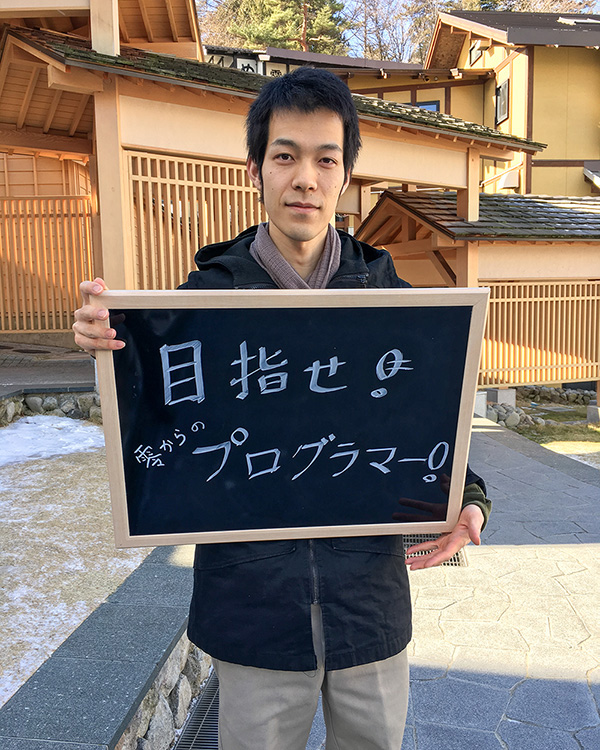 目指せ!
零からの
プログラマー!